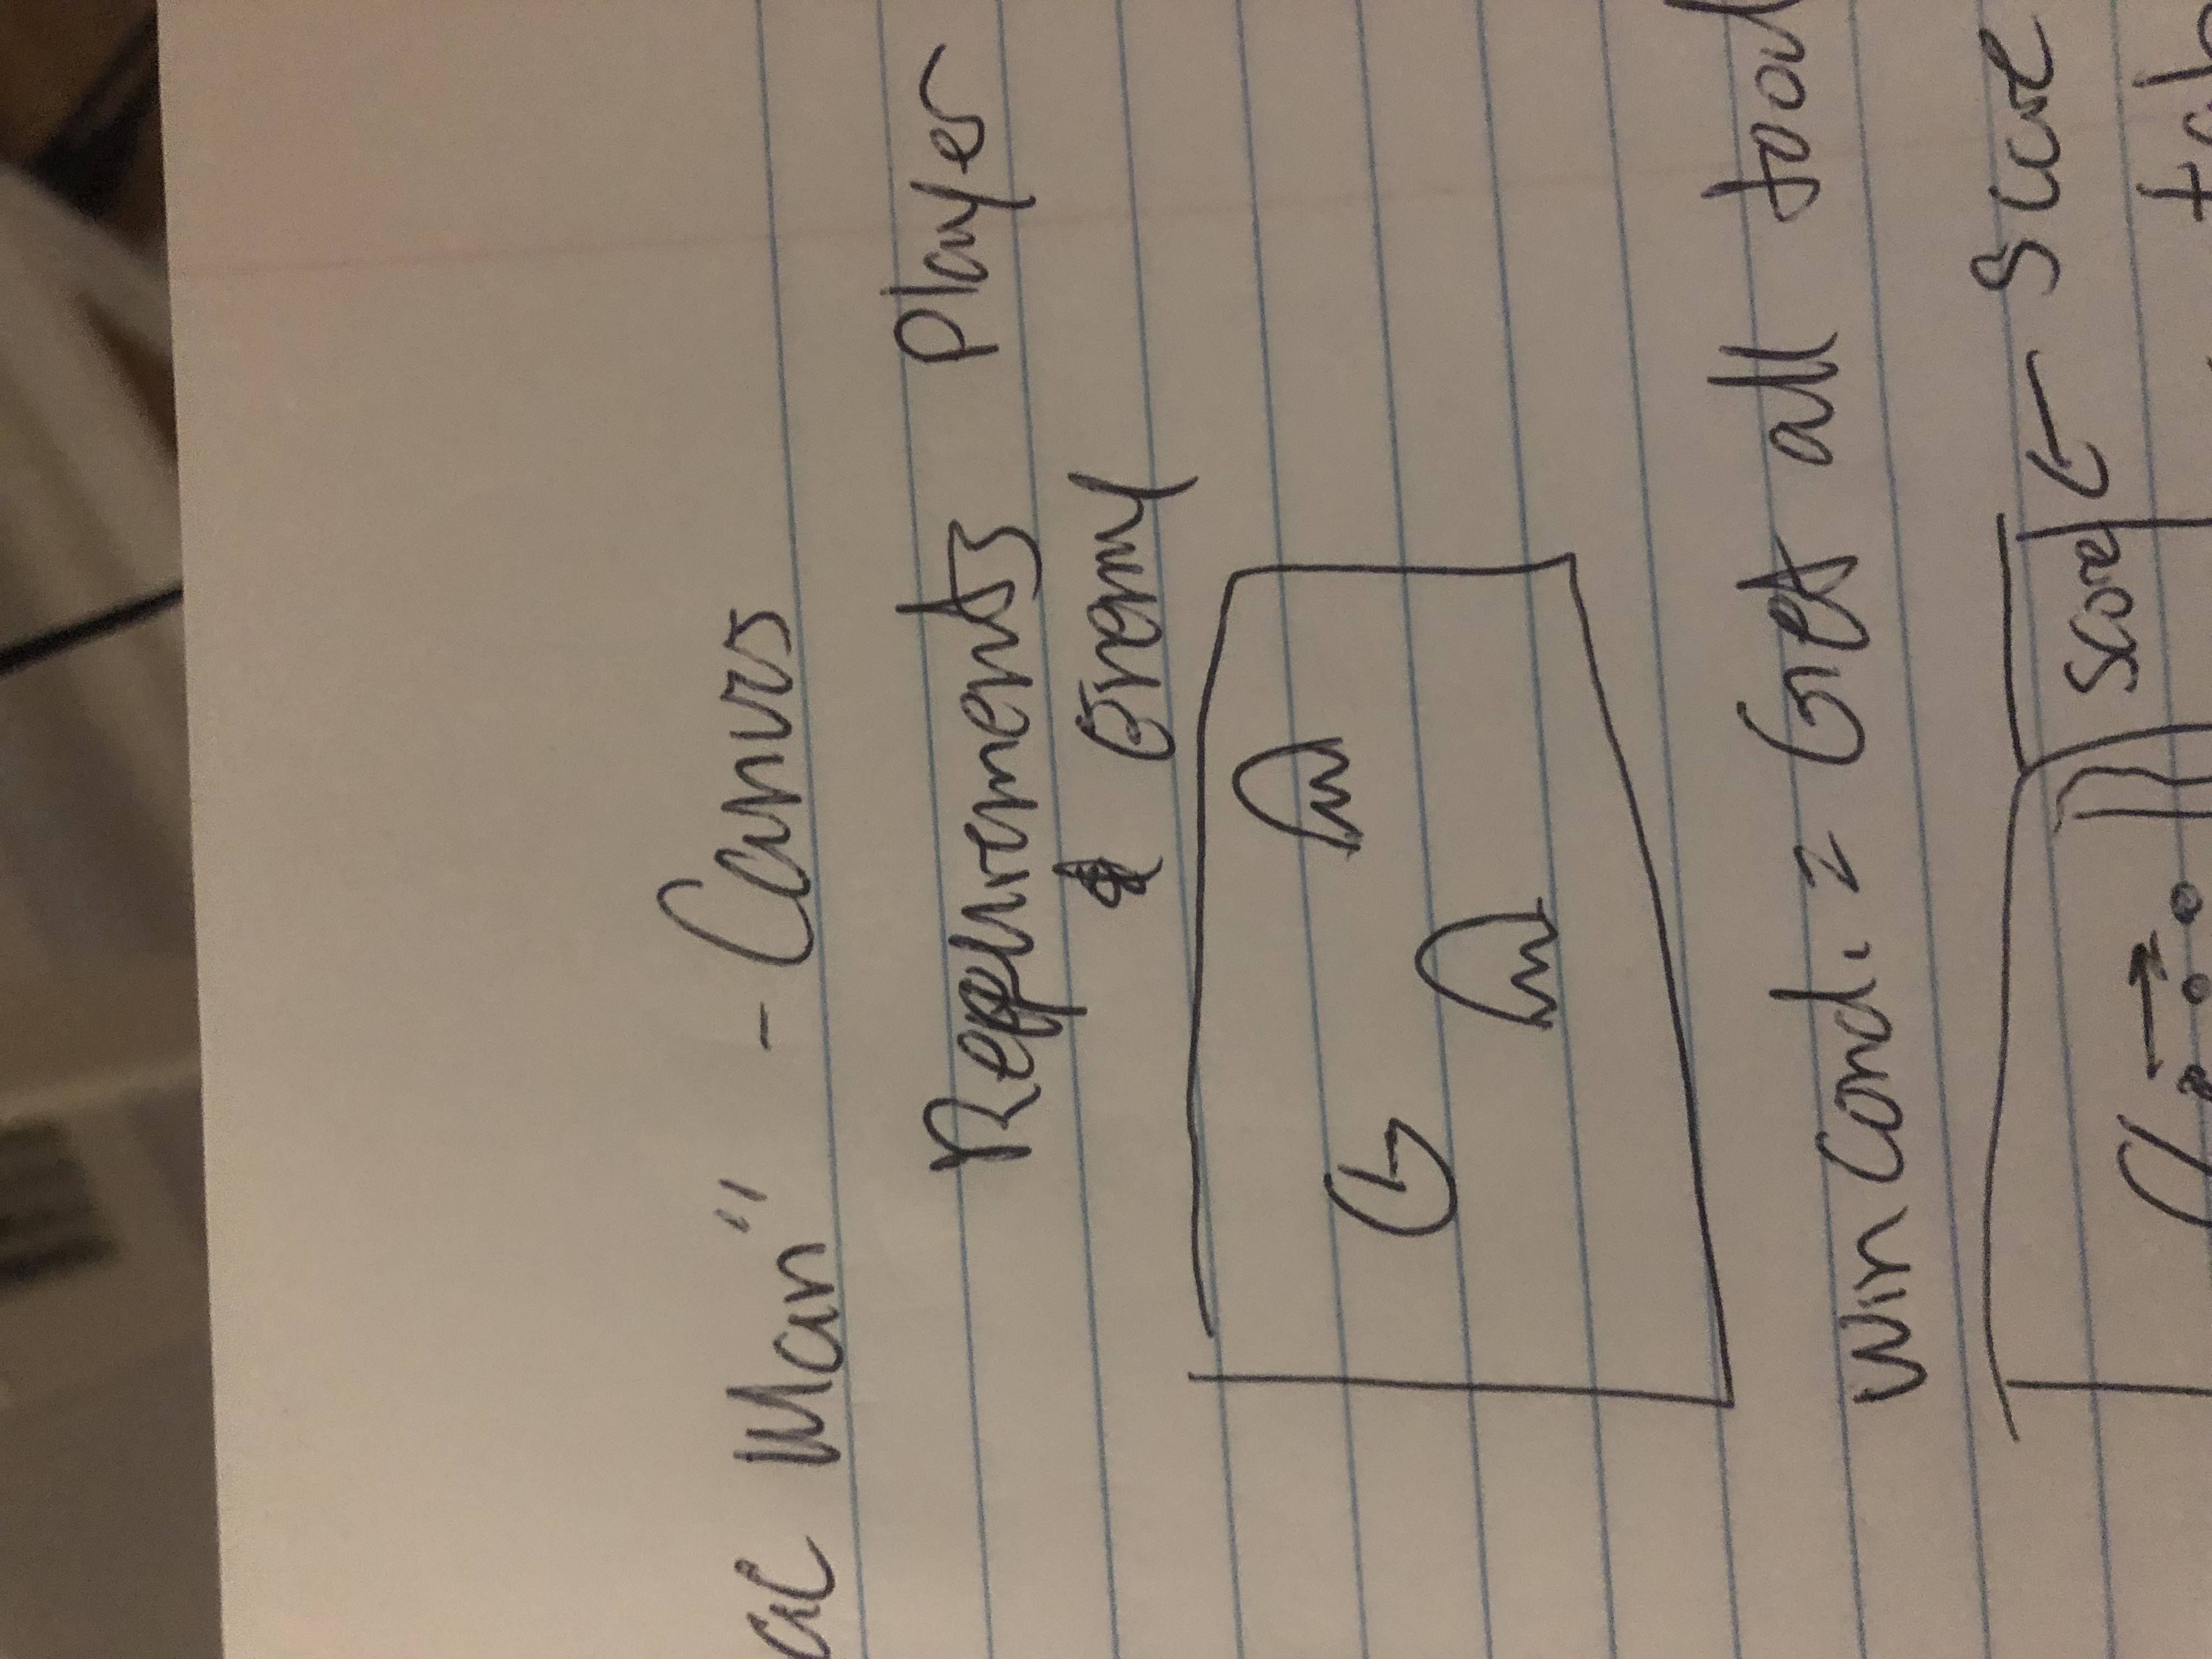 ac Man" - Canvas
Requirements Player
& Enemy
win cond. = Get all food
score ← Score